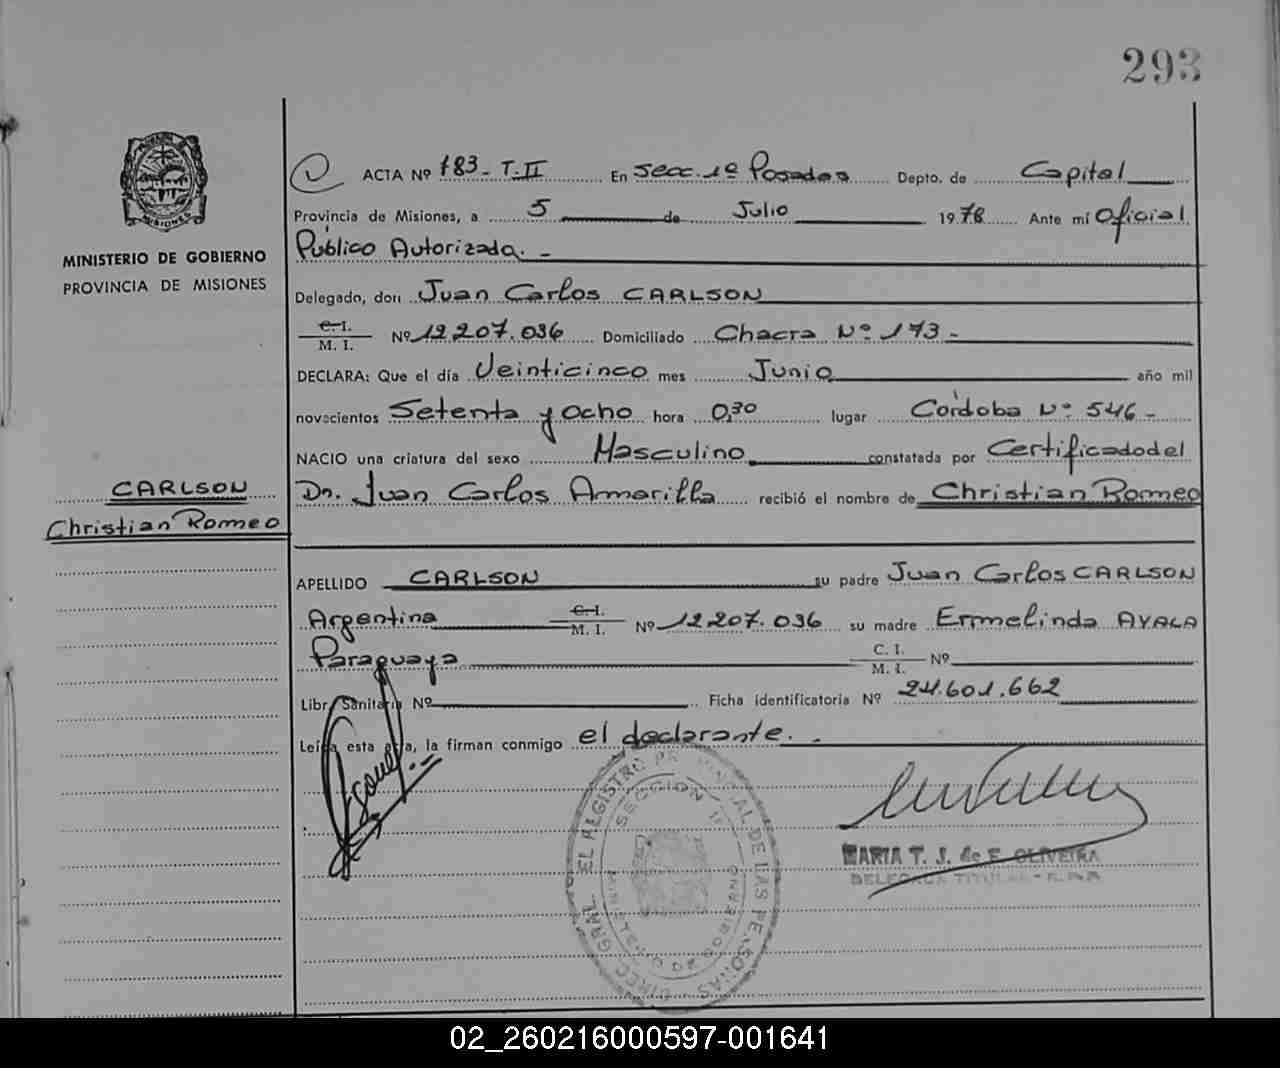 293
MINISTERIO DE GOBIERNO
PROVINCIA DE MISIONES
CARLSON
Christian Romeo
ACTA Nº 783- T.II En Secc. 1º Posadas Depto. de Capital
Provincia de Misiones, a 5 de Julio 1978 Ante mí Oficial
Público Autorizada. -
Delegado, don Juan Carlos CARLSON
C. I.
M. I. Nº 12 207.036 Domiciliado Chacra Nº 173 -
DECLARA: Que el día Veinticinco mes Junio año mil
novecientos Setenta y Ocho hora 0,30 lugar Córdoba Nº 546 -
NACIO una criatura del sexo Masculino constatada por Certificado del
Dn. Juan Carlos Amarilla recibió el nombre de Christian Romeo
APELLIDO CARLSON su padre Juan Carlos CARLSON
Argentina C. I. M. I. Nº 12 207. 036 su madre Ermelinda AYALA
Paraguaya C. I. M. I. Nº
Libr. Sanitaria Nº Ficha identificatoria Nº 24.601.662
Leída esta acta, la firman conmigo el declarante. -
MARIA T. J. de F. OLIVEIRA
DELEGADA TITULAR
SECCION 1ª
MINISTERIO DE GOBIERNO
02_260216000597-001641